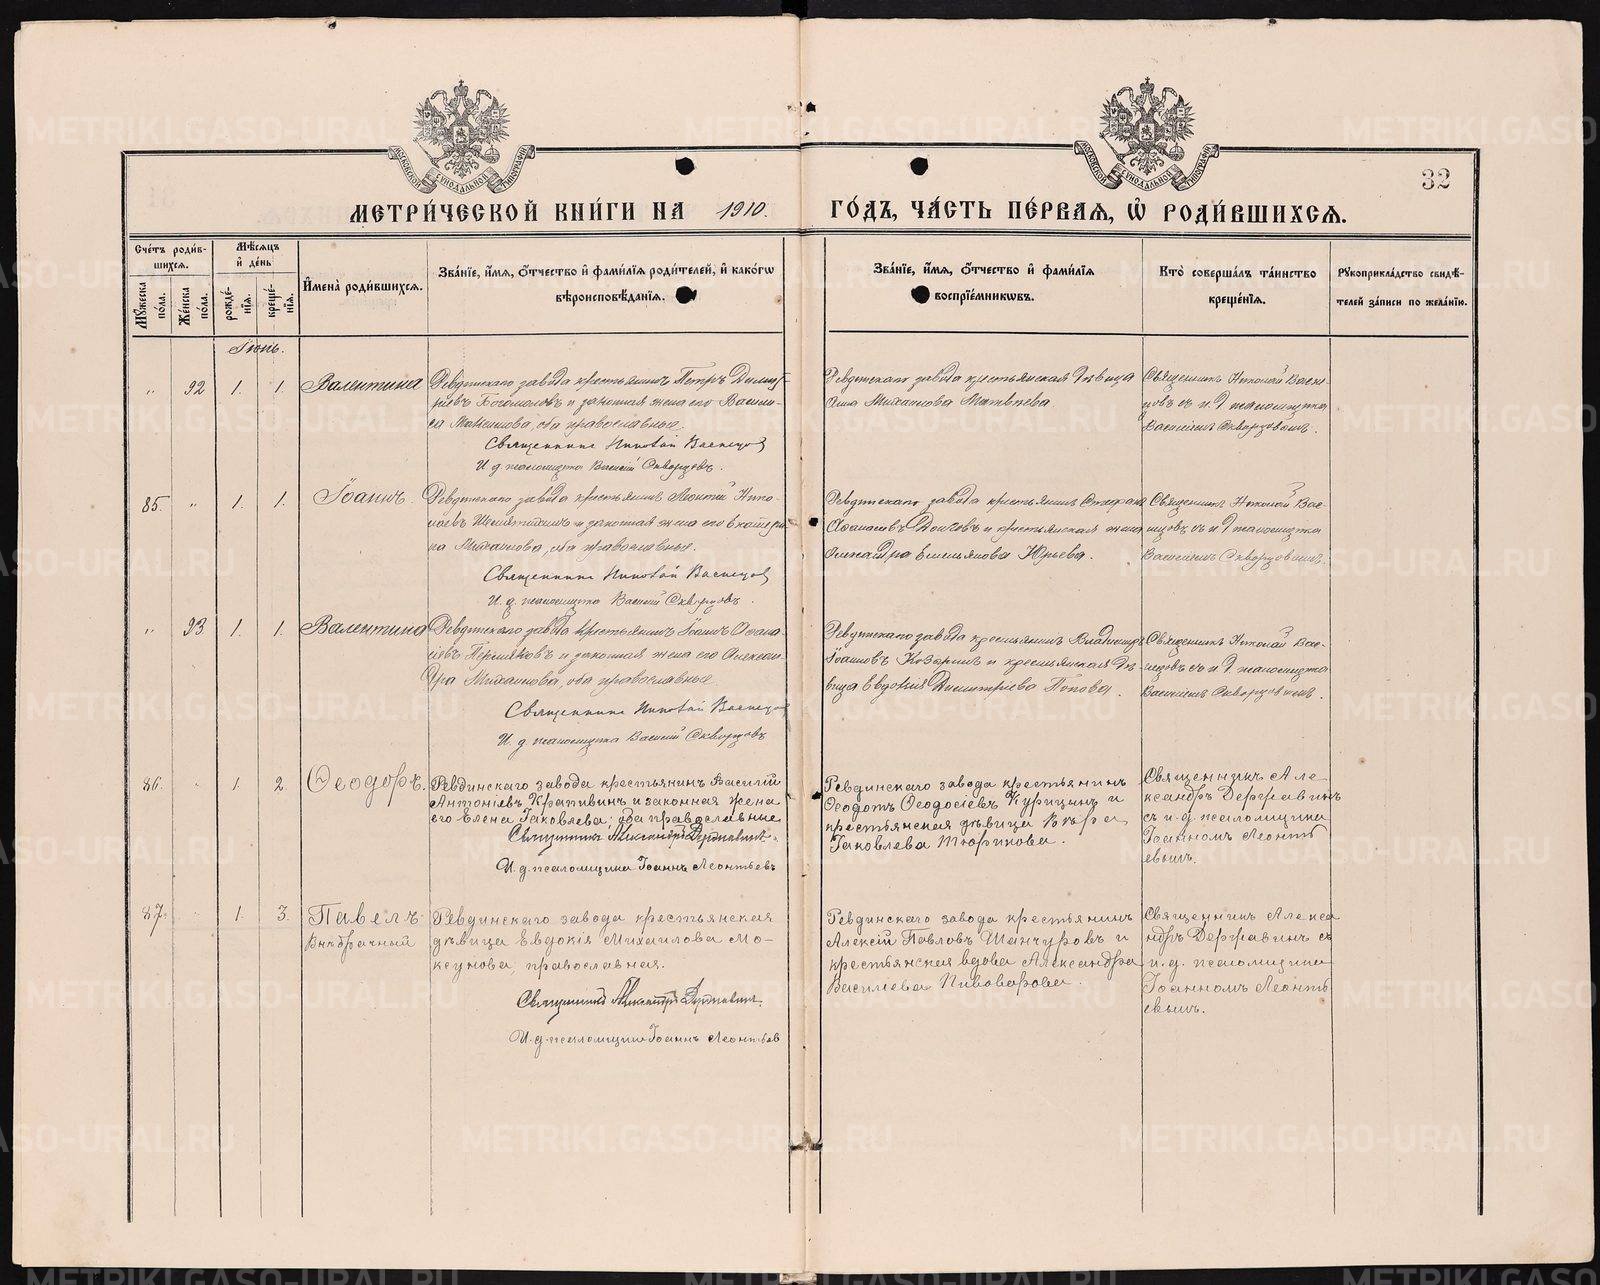 32
МЕТРИ́ЧЕСКОЙ КНИ́ГИ НА 1910. ГО́ДЪ, ЧА́СТЬ ПЕ́РВАЯ, Ѡ РОДИ́ВШИХСЯ.
Сче́тъ роди́в-
шихся.
Му́жеска по́ла.
Же́нска по́ла.
Мѣ́сяцъ и де́нь
рожде́-
нія.
креще́-
нія.
Имена̀ роди́вшихся.
Зва́ніе, и́мя, о́тчество и фами́лія роди́телей, и како́гѡ
вѣроисповѣ́данія.
Зва́ніе, и́мя, о́тчество и фами́лія
воспріе́мникѡвъ.
Кто̀ соверша́лъ та́инство
креще́нія.
Рукоприкла́дство свидѣ́-
телей за́писи по жела́нію.
Іюнь.
" 92 1. 1. Валентина
Ревдинскаго завода крестьянинъ Петръ Димит-
ріевъ Богомоловъ и законная жена его Васили-
са Максимова, оба православные.
Священникъ Николай Васнецов
И. д. псаломщика Василій Скворцовъ.
Ревдинскаго завода крестьянская дѣвица
Анна Михаилова Матвѣева.
Священникъ Николай Васне-
цовъ съ и. д. псаломщика
Василіемъ Скворцовымъ.
85. " 1. 1. Іоаннъ
Ревдинскаго завода крестьянинъ Леонтій Нико-
лаевъ и законная жена его Екатери-
на Михаилова, оба православные.
Священникъ Николай Васнецов
И. д. псаломщика Василій Скворцовъ.
Ревдинскаго завода крестьянинъ Стефанъ
Аѳанасіевъ и крестьянская жена
Александра Емельянова Юрьева.
Священникъ Николай Вас-
нецовъ съ и. д. псаломщика
Василіемъ Скворцовымъ.
" 93 1. 1. Валентина
Ревдинскаго завода крестьянинъ Іоаннъ Аѳана-
сіевъ Пермяковъ и законная жена его Алексан-
дра Михаилова, оба православные.
Священникъ Николай Васнецов
И. д. псаломщика Василій Скворцовъ
Ревдинскаго завода крестьянинъ Владимиръ
Іоанновъ Козыринъ и крестьянская дѣ-
вица Евдокія Димитріева Попова.
Священникъ Николай Вас-
нецовъ съ и. д. псаломщика
Василіемъ Скворцовымъ.
86. " 1. 2. Ѳеодоръ.
Ревдинскаго завода крестьянинъ Василій
Антоніевъ Крапивинъ и законная жена
его Елена Іаковлева; оба православные
Священникъ Александръ Державинъ.
И. д. псаломщика Іоаннъ Леонтьевъ
Ревдинскаго завода крестьянинъ
Ѳеодотъ Ѳеодосіевъ Курицынъ и
крестьянская дѣвица Вѣра
Іаковлева Тюрикова.
Священникъ Але
ксандръ Державинъ
съ и. д. псаломщика
Іоанномъ Леонть
евымъ.
87. " 1. 3. Павелъ
Внѣбрачный
Ревдинскаго завода крестьянская
дѣвица Евдокія Михаилова Мо-
ксунова, православная.
Священникъ Александръ Державинъ.
И. д. псаломщика Іоаннъ Леонтьев
Ревдинскаго завода крестьянинъ
Алексій Павловъ Шанчуровъ и
крестьянская вдова Александра
Василіева Пивоварова.
Священникъ Алекса
ндръ Державинъ съ
и. д. псаломщика
Іоанномъ Леонть
евымъ.
METRIKI.GASO-URAL.RU